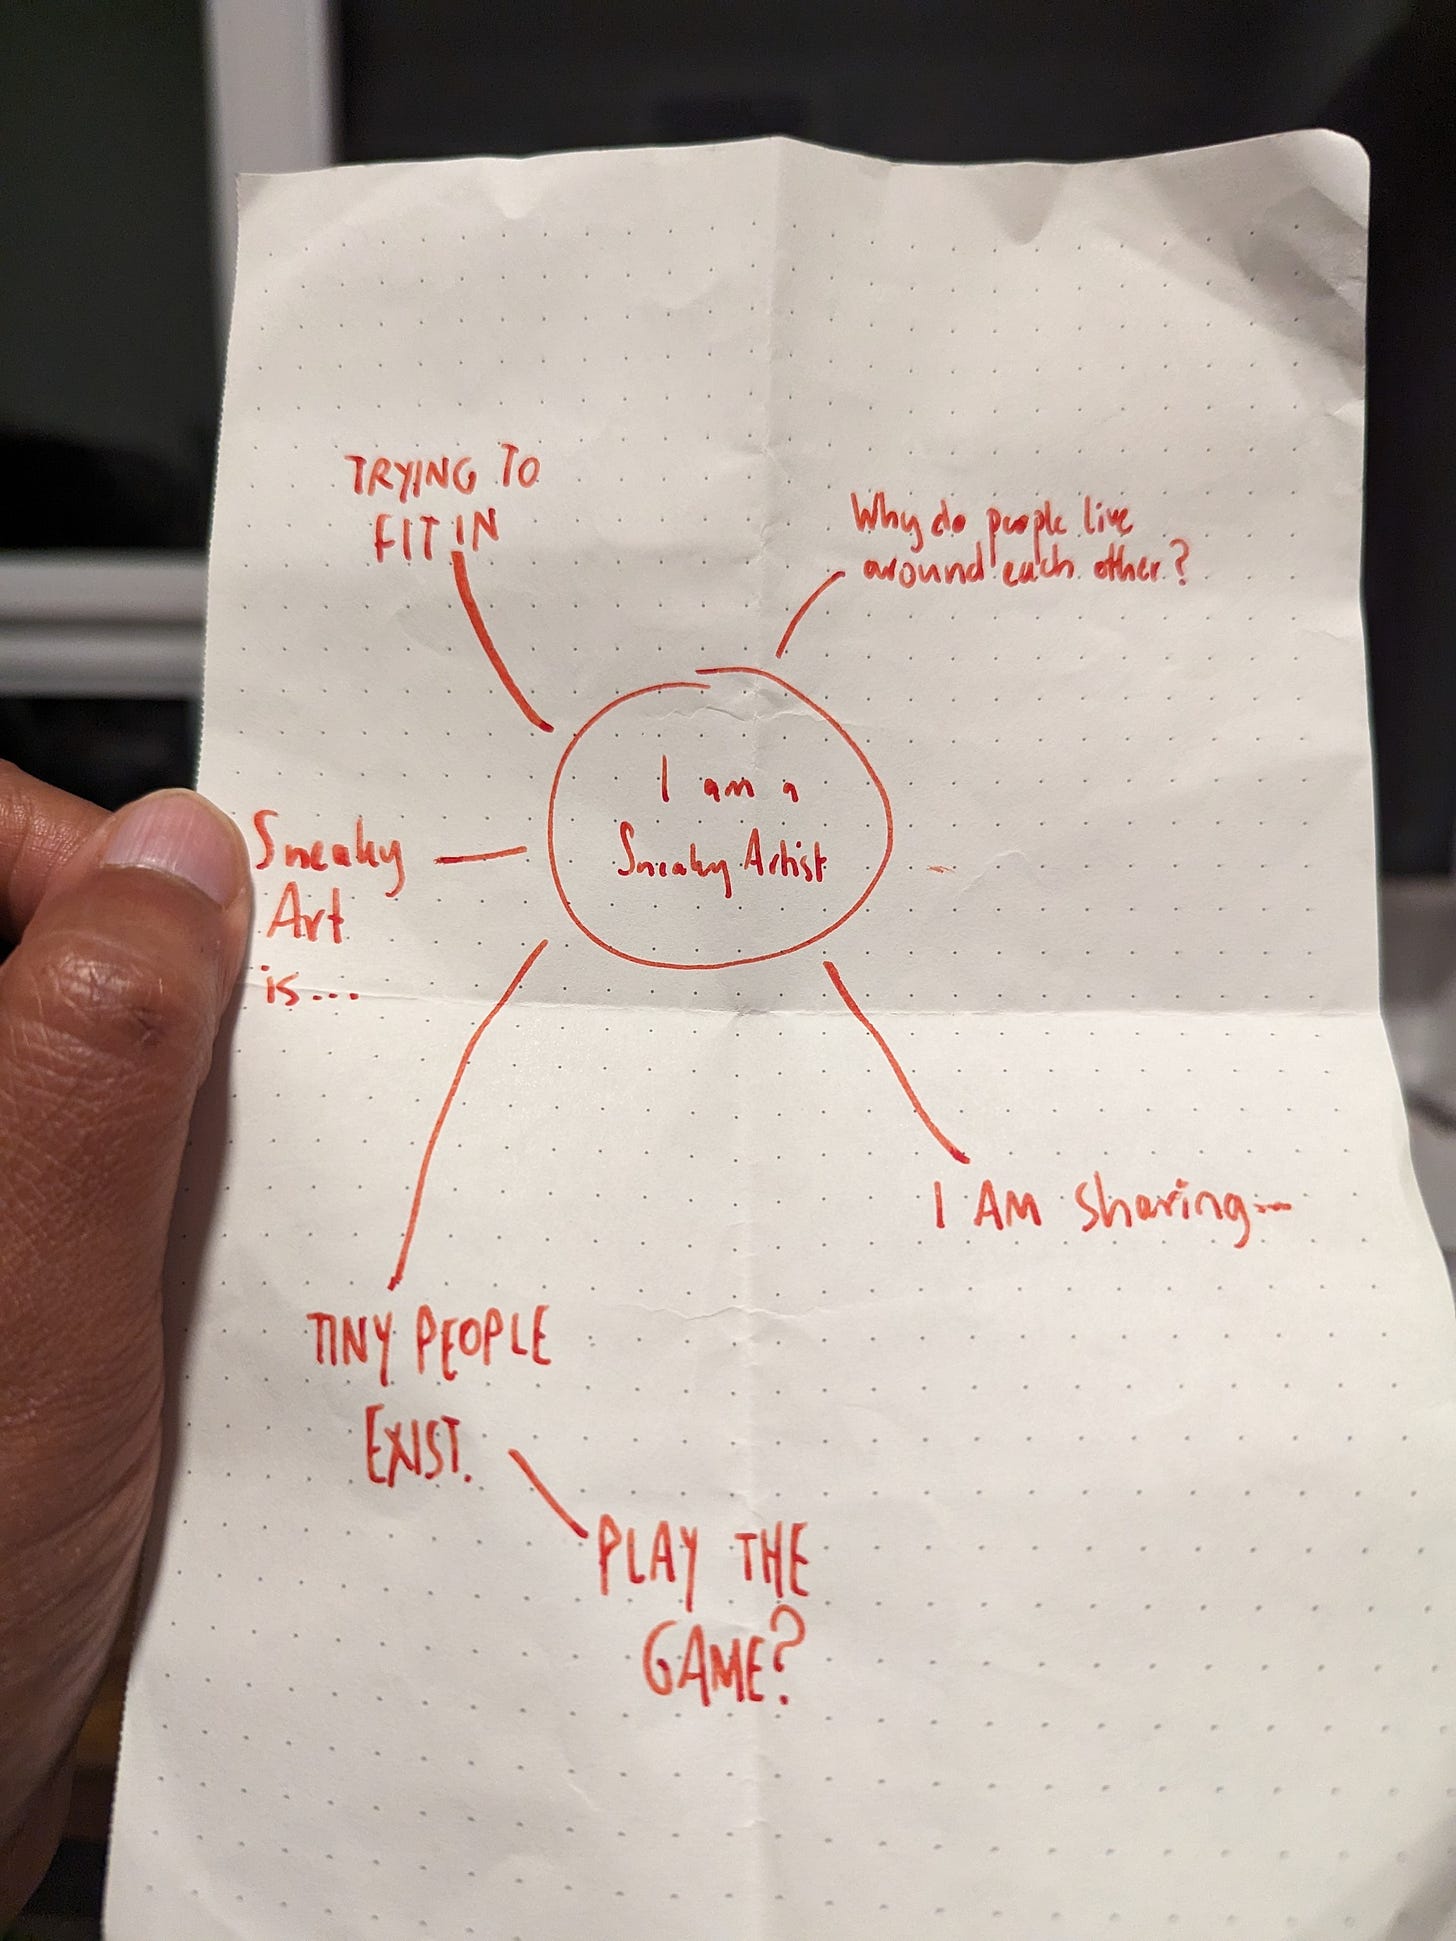 TRYING TO
FIT IN
Why do people live
around each other?
I am a
Sneaky Artist
Sneaky
Art
is...
I AM sharing...
TINY PEOPLE
EXIST.
PLAY THE
GAME?